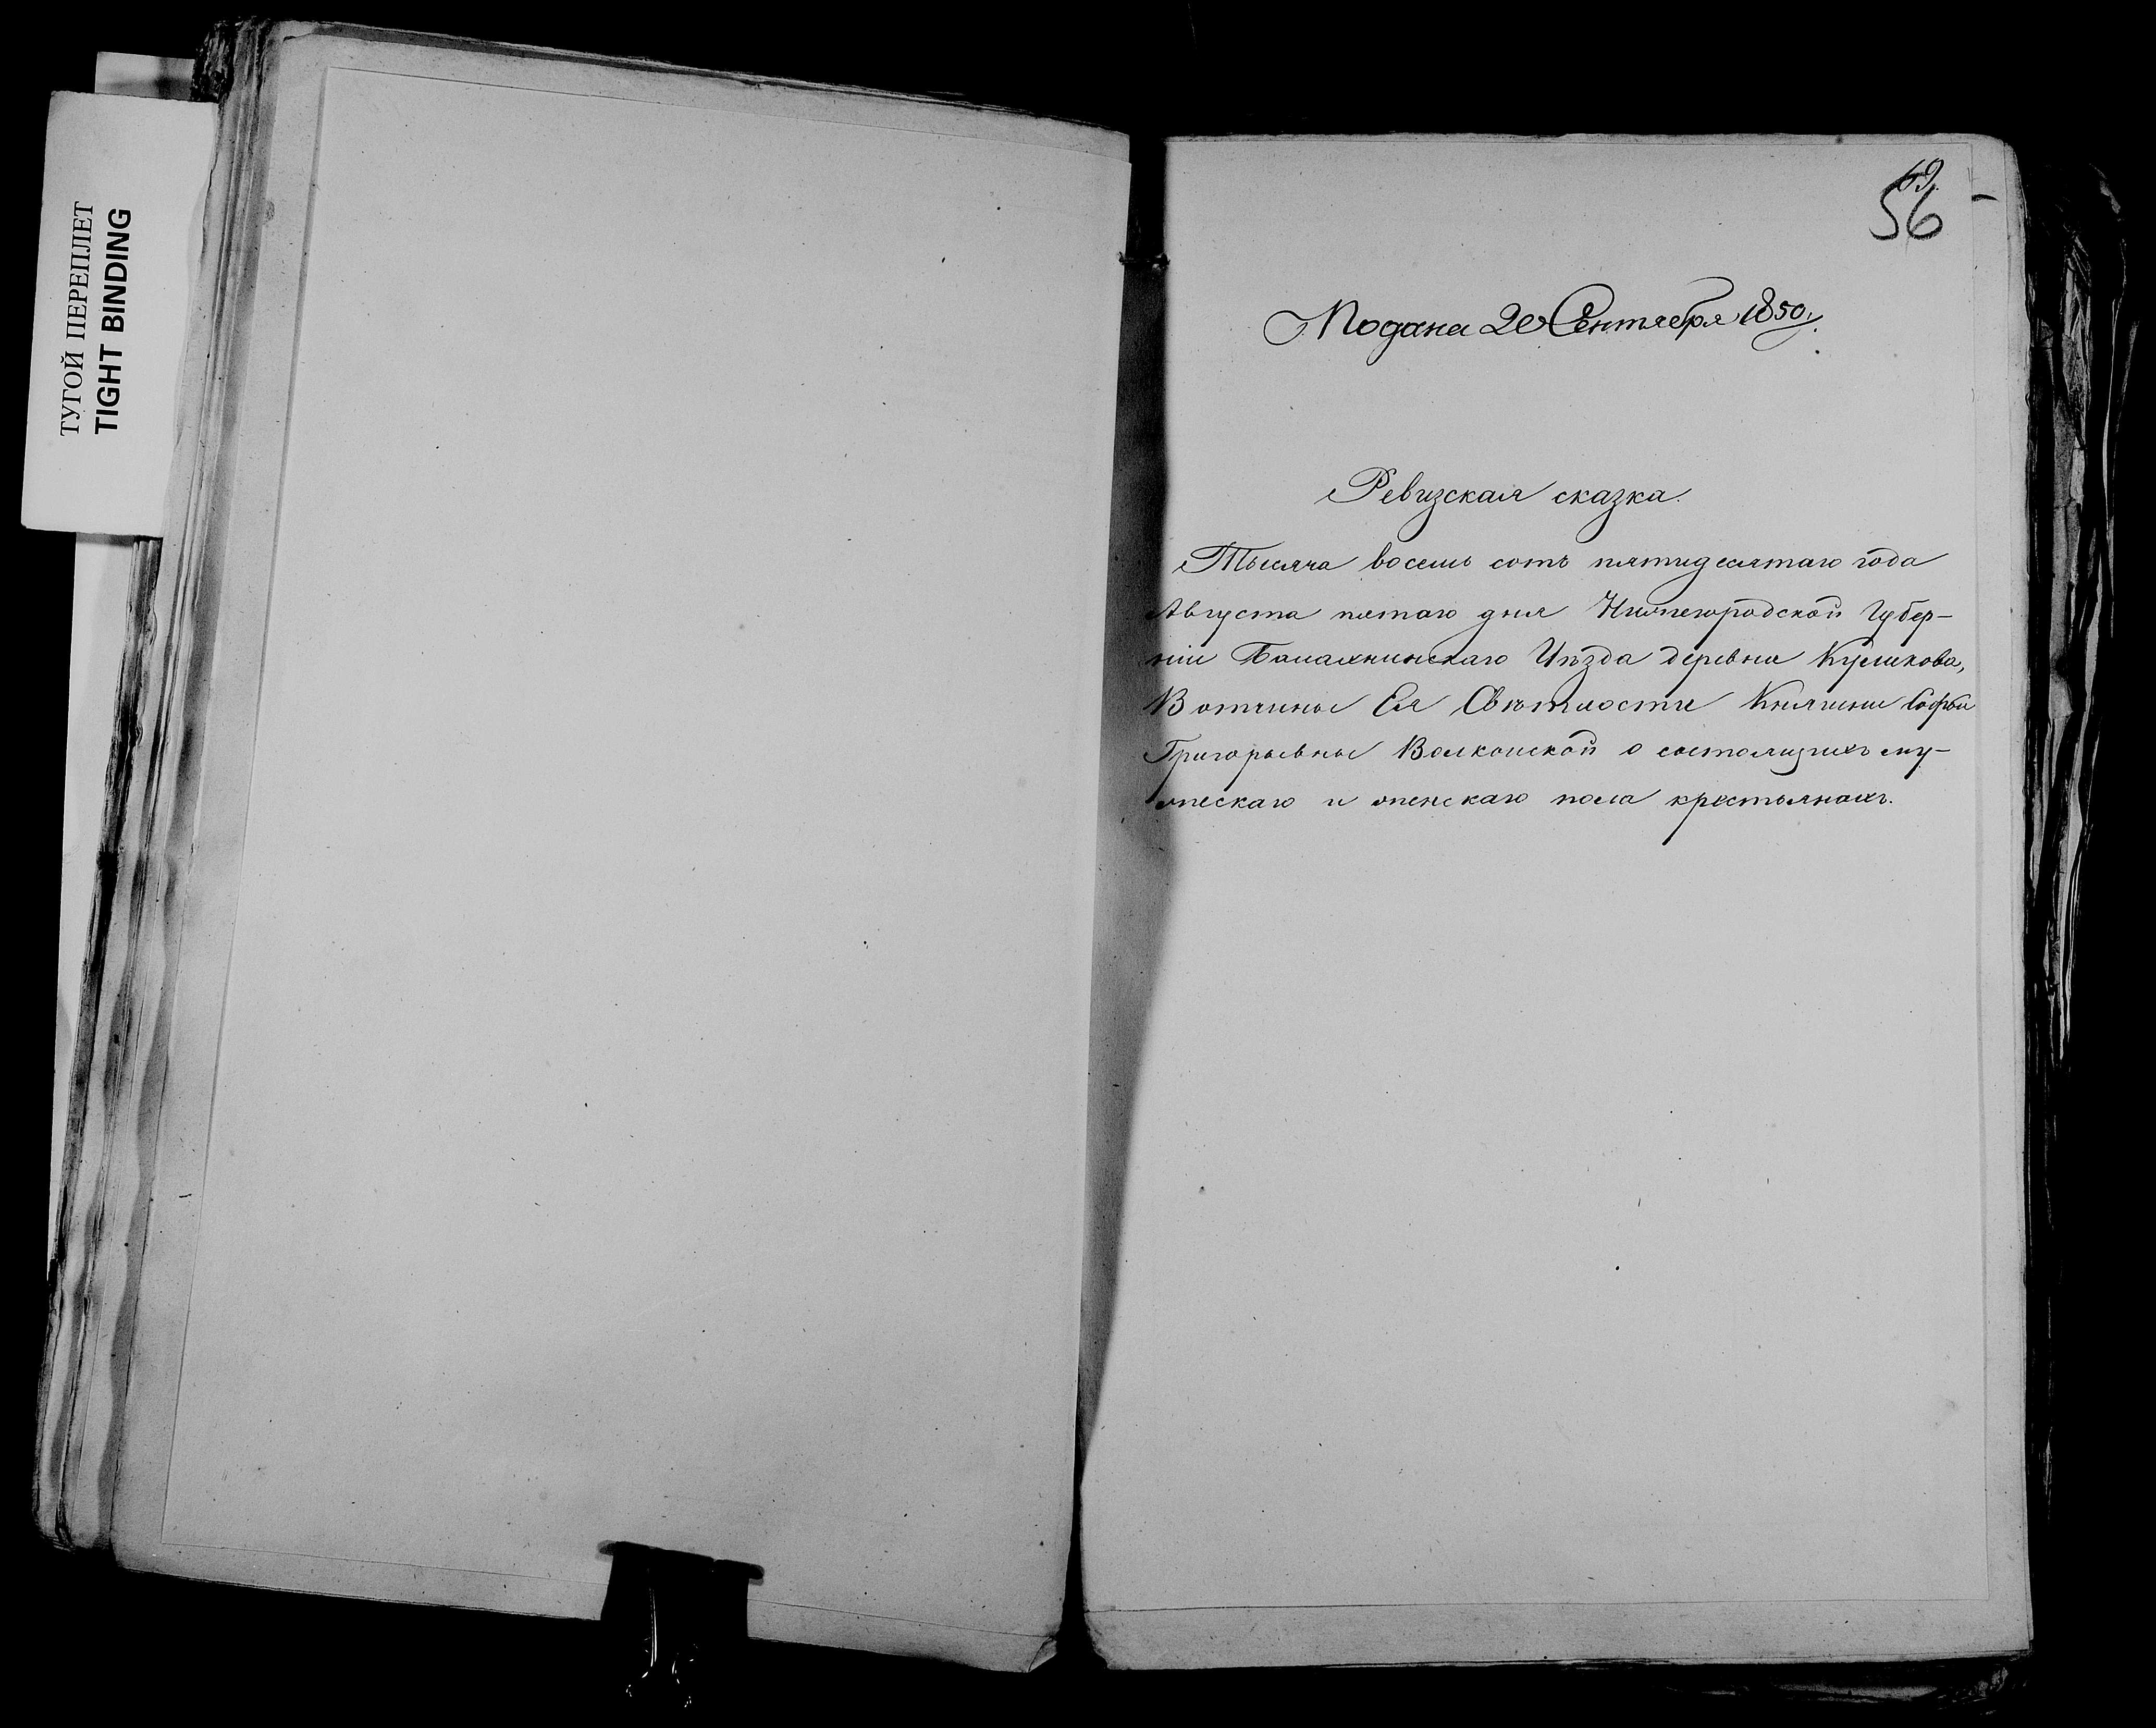 ТУГОЙ ПЕРЕПЛЕТ
TIGHT BINDING
69.
56
Подана 20 Сентября 1850.
Ревизская сказка.
Тысяча восемь сотъ пятидесятаго года
Августа пятаго дня Нижегородской Губер-
ніи Балахнинскаго Уѣзда деревни Куликова,
Вотчины Ея Свѣтлости Княгини Софьи
Григорьевны Волконской о состоящихъ му-
жескаго и женскаго пола крестьянахъ.